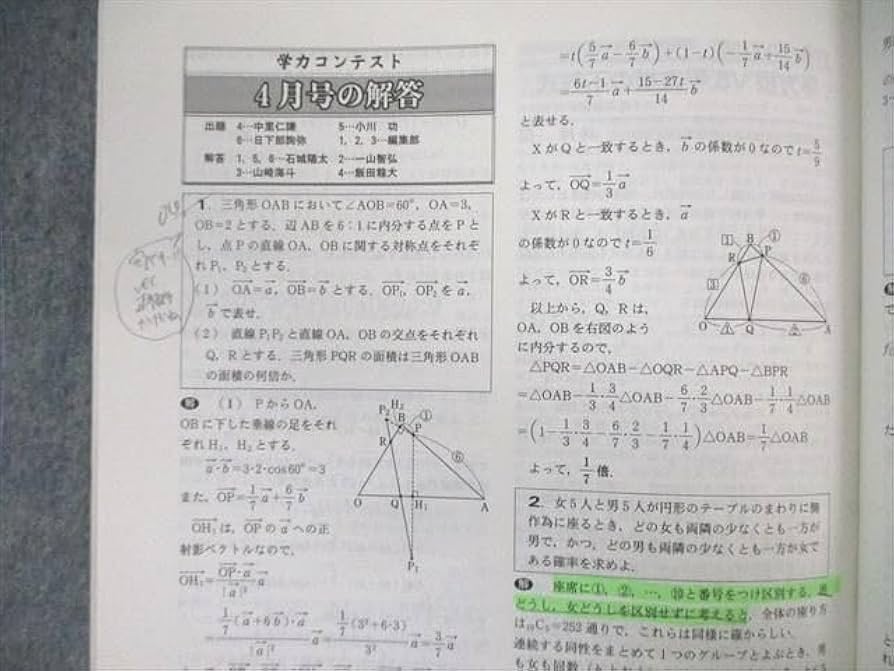 学力コンテスト
4月号の解答
出題 4…中里仁謙 5…小川 功
6…日下部駒弥 1, 2, 3…編集部
解答 1, 5, 6…石城陽太 2…一山智弘
3…山崎海斗 4…飯田龍大
1. 三角形OABにおいて∠AOB=60°, OA=3,
OB=2とする. 辺ABを6:1に内分する点をPと
し, 点Pの直線OA, OBに関する対称点をそれぞ
れP₁, P₂とする.
(1) OA→=a→, OB→=b→とする. OP₁→, OP₂→をa→,
b→で表せ.
(2) 直線P₁P₂と直線OA, OBの交点をそれぞれ
Q, Rとする. 三角形PQRの面積は三角形OAB
の面積の何倍か.
解 (1) PからOA,
OBに下した垂線の足をそれ
ぞれH₁, H₂とする.
a→・b→=3・2・cos60°=3
また, OP→=1/7 a→+6/7 b→
OH₁→は, OP→のa→への正
射影ベクトルなので,
OH₁→=OP→・a→/|a→|² a→
=1/7(a→+6b→)・a→/|a→|² a→=1/7(3²+6・3)/3² a→=3/7 a→
P₂ H₂ ①
B P
R ⑥
O Q H₁ A
P₁
=t(5/7 a→-6/7 b→)+(1-t)(-1/7 a→+15/14 b→)
=6t-1/7 a→+15-27t/14 b→
と表せる.
XがQと一致するとき, b→の係数が0なのでt=5/9
よって, OQ→=1/3 a→
XがRと一致するとき, a→
の係数が0なのでt=1/6
よって, OR→=3/4 b→
以上から, Q, Rは,
OA, OBを右図のよう
に内分するので,
1 B ①
R P
3 ⑥
O Q A
△PQR=△OAB-△OQR-△APQ-△BPR
=△OAB-1/3・3/4△OAB-6/7・2/3△OAB-1/7・1/4△OAB
=(1-1/3・3/4-6/7・2/3-1/7・1/4)△OAB=1/7△OAB
よって, 1/7倍.
2. 女5人と男5人が円形のテーブルのまわりに無
作為に座るとき, どの女も両隣の少なくとも一方が
男で, かつ, どの男も両隣の少なくとも一方が女で
ある確率を求めよ.
解 座席に①, ②, …, ⑩と番号をつけ区別する. 男
どうし, 女どうしを区別せずに考えると, 全体の座り方
は₁₀C₅=252通りで, これらは同様に確からしい.
連続する同性をまとめて1つのグループとよぶとき, 男
も女も同数